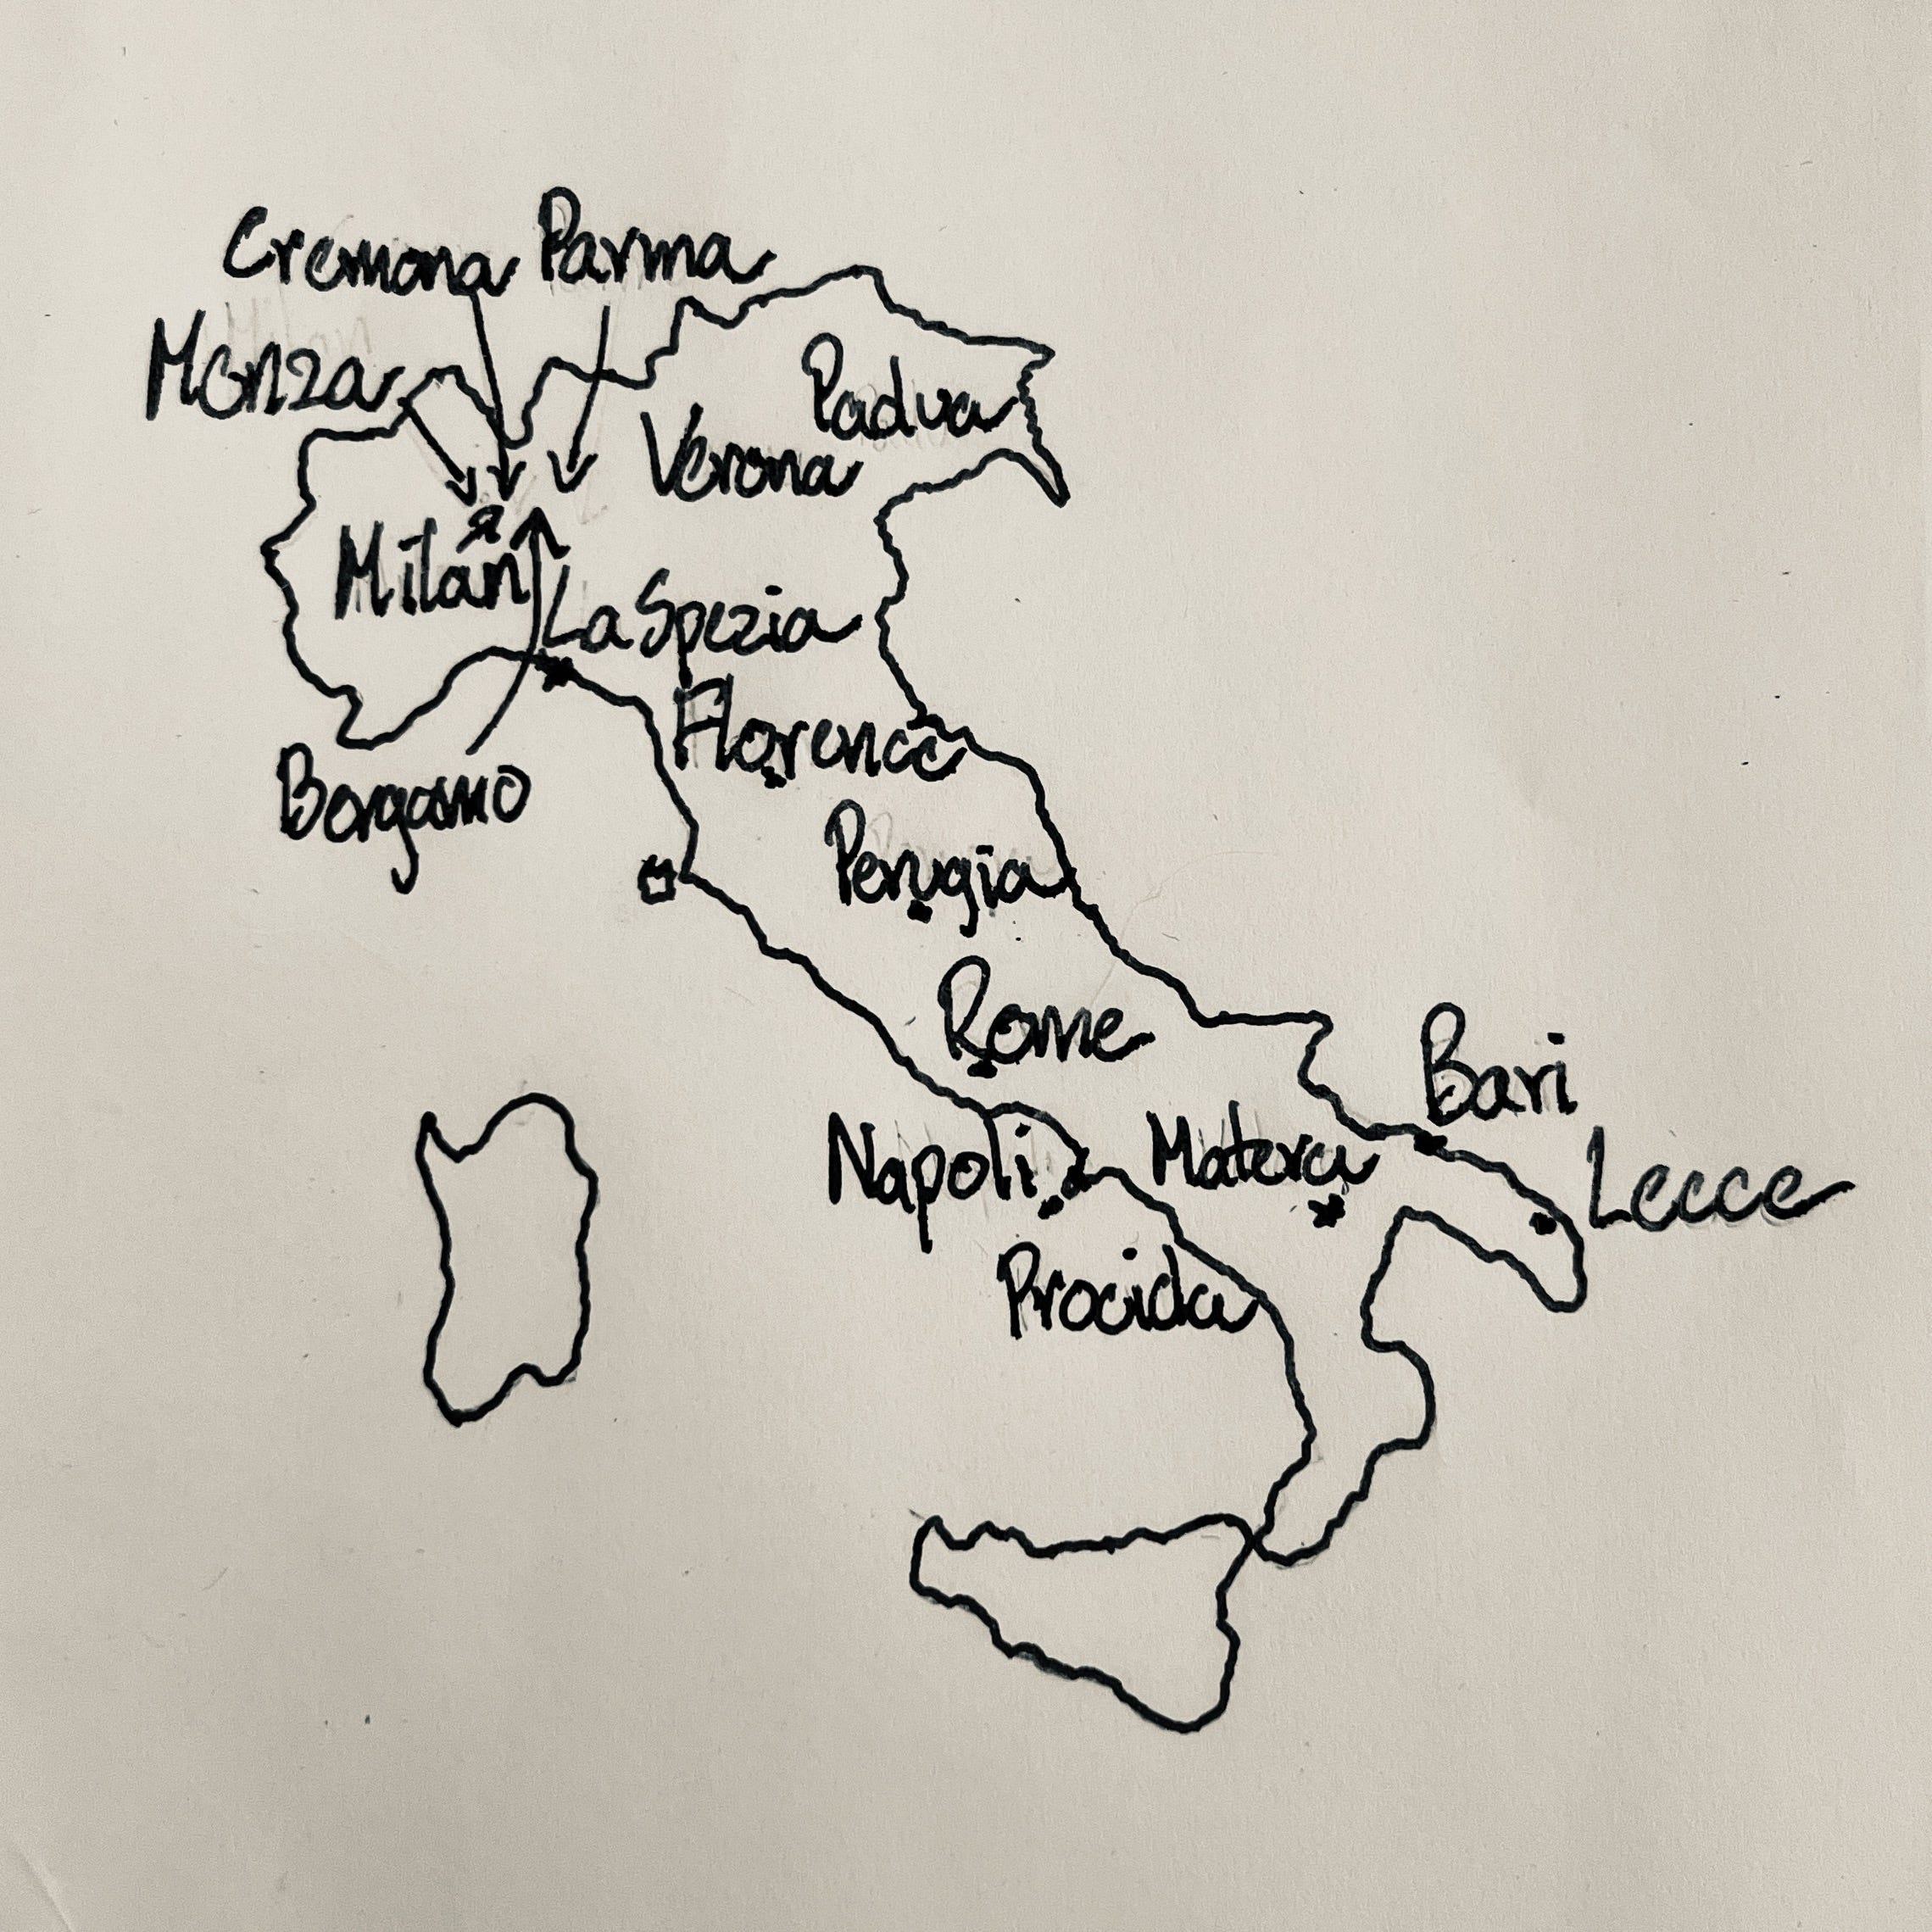 Cremona Parma
Monza
Padua
Verona
Milan
La Spezia
Florence
Bergamo
Perugia
Rome
Bari
Napoli
Matera
Lecce
Procida